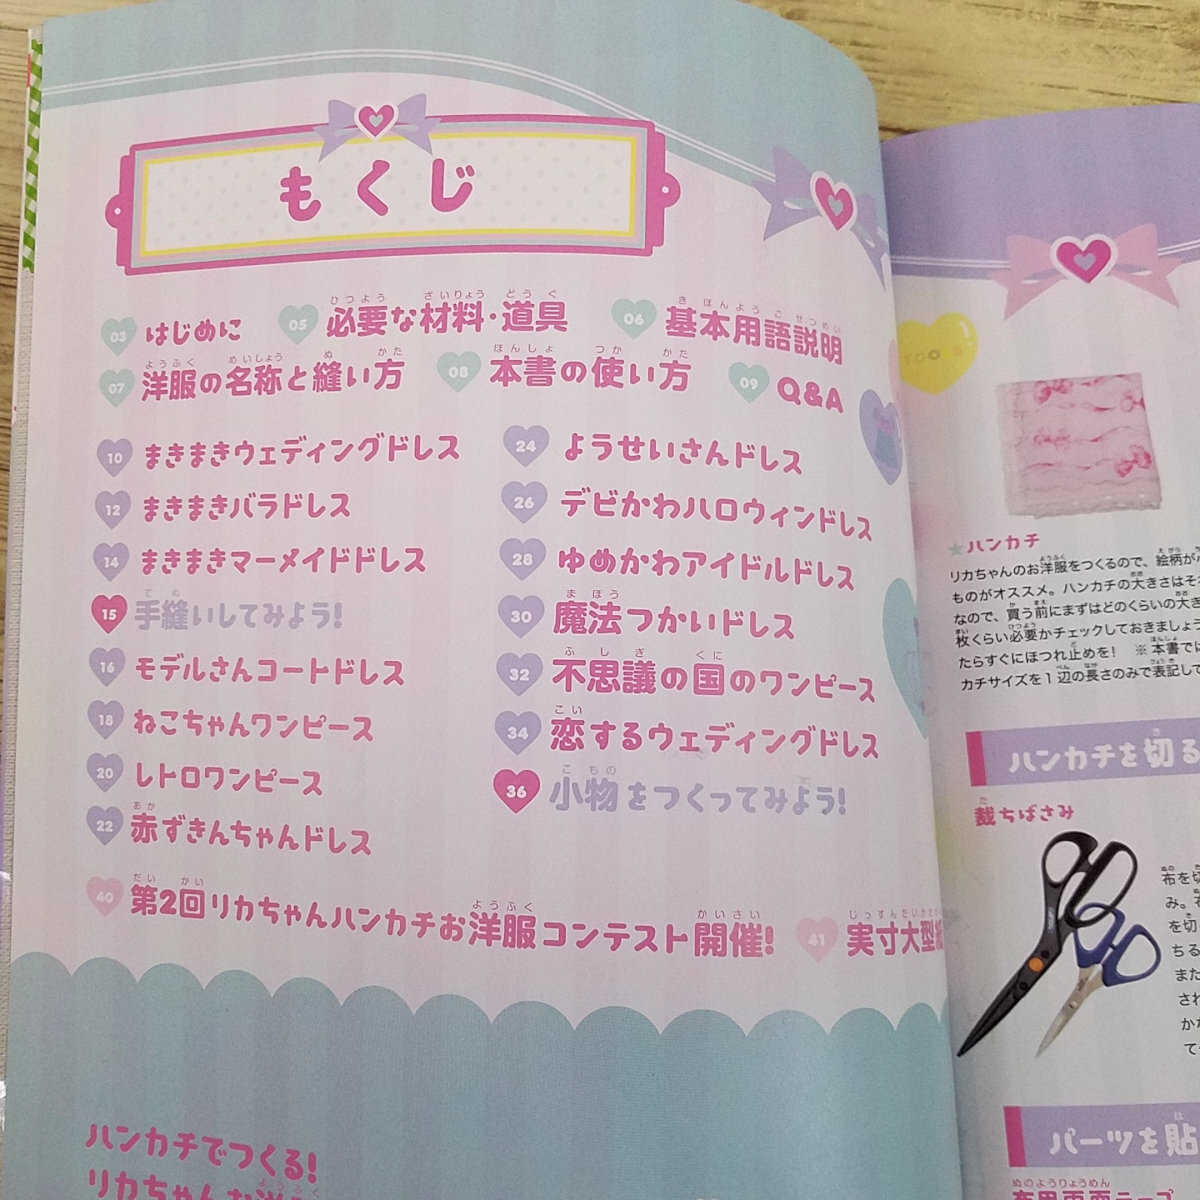 もくじ
03 はじめに 05 必要な材料・道具 06 基本用語説明
07 洋服の名称と縫い方 08 本書の使い方 09 Q&A
10 まきまきウェディングドレス
12 まきまきバラドレス
14 まきまきマーメイドドレス
15 手縫いしてみよう!
16 モデルさんコートドレス
18 ねこちゃんワンピース
20 レトロワンピース
22 赤ずきんちゃんドレス
24 ようせいさんドレス
26 デビかわハロウィンドレス
28 ゆめかわアイドルドレス
30 魔法つかいドレス
32 不思議の国のワンピース
34 恋するウェディングドレス
36 小物をつくってみよう!
40 第2回リカちゃんハンカチお洋服コンテスト開催! 41 実寸大型
ハンカチでつくる!
リカちゃん
TOOLS
★ハンカチ
リカちゃんのお洋服をつくるので、絵柄が
ものがオススメ。ハンカチの大きさはそ
なので、買う前にまずはどのくらいの大き
枚くらい必要かチェックしておきましょう
たらすぐにほつれ止めを! ※本書では
カチサイズを1辺の長さのみで表記して
ハンカチを切る
裁ちばさみ
布を切
み。
を切
ちる
また
され
かな
て
パーツを貼